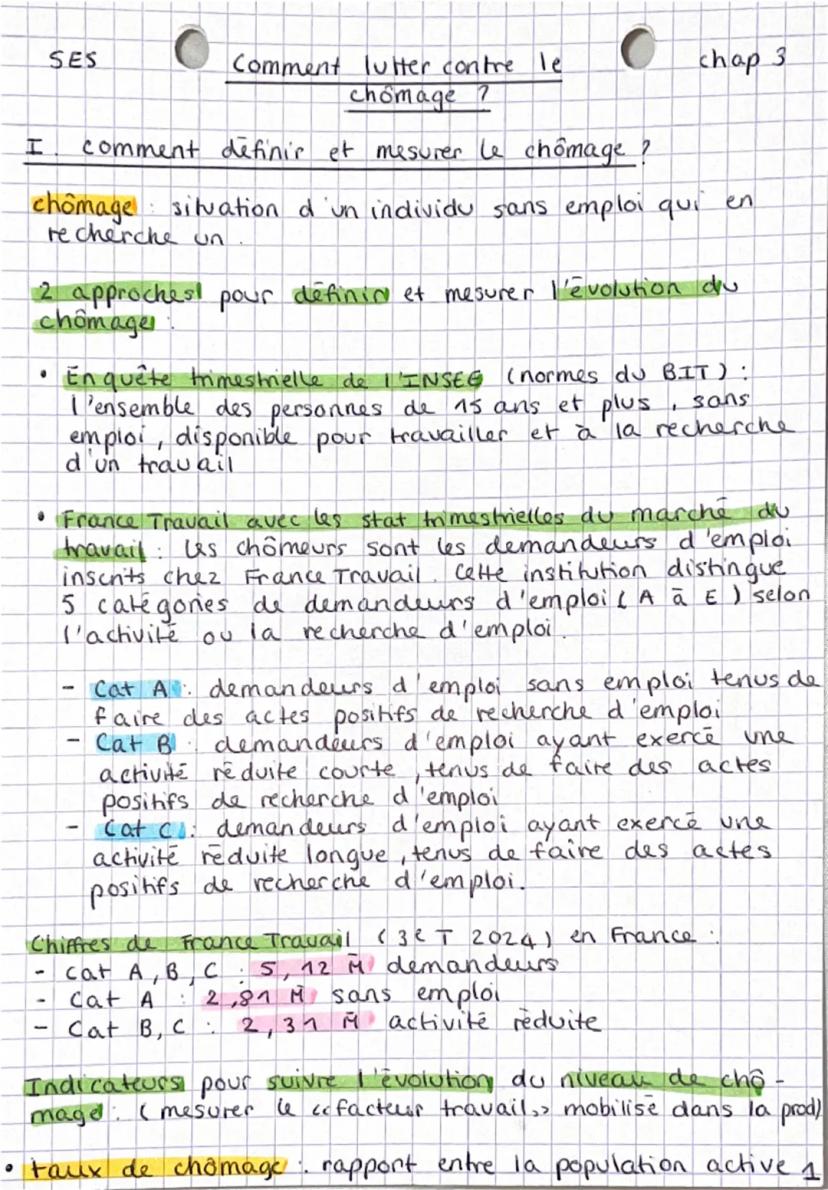 SES
Comment lutter contre le
chômage ?
chap 3
I. comment définir et mesurer le chômage ?
chômage : situation d'un individu sans emploi qui en
recherche un.
2 approches pour définir et mesurer l'évolution du
chômage :
• Enquête trimestrielle de l'INSEE (normes du BIT) :
l'ensemble des personnes de 15 ans et plus, sans
emploi, disponible pour travailler et à la recherche
d'un travail
• France Travail avec les stat trimestrielles du marché du
travail : les chômeurs sont les demandeurs d'emploi
inscrits chez France Travail. Cette institution distingue
5 catégories de demandeurs d'emploi (A à E) selon
l'activité ou la recherche d'emploi.
- Cat A : demandeurs d'emploi sans emploi tenus de
faire des actes positifs de recherche d'emploi
- Cat B : demandeurs d'emploi ayant exercé une
activité réduite courte, tenus de faire des actes
positifs de recherche d'emploi
- Cat C : demandeurs d'emploi ayant exercé une
activité réduite longue, tenus de faire des actes
positifs de recherche d'emploi.
Chiffres de France Travail (3e T 2024) en France :
- Cat A, B, C : 5,12 M demandeurs
- Cat A : 2,81 M sans emploi
- Cat B, C : 2,31 M activité réduite
Indicateurs pour suivre l'évolution du niveau de chô-
mage : (mesurer le «facteur travail» mobilisé dans la prod)
• taux de chômage : rapport entre la population active 1